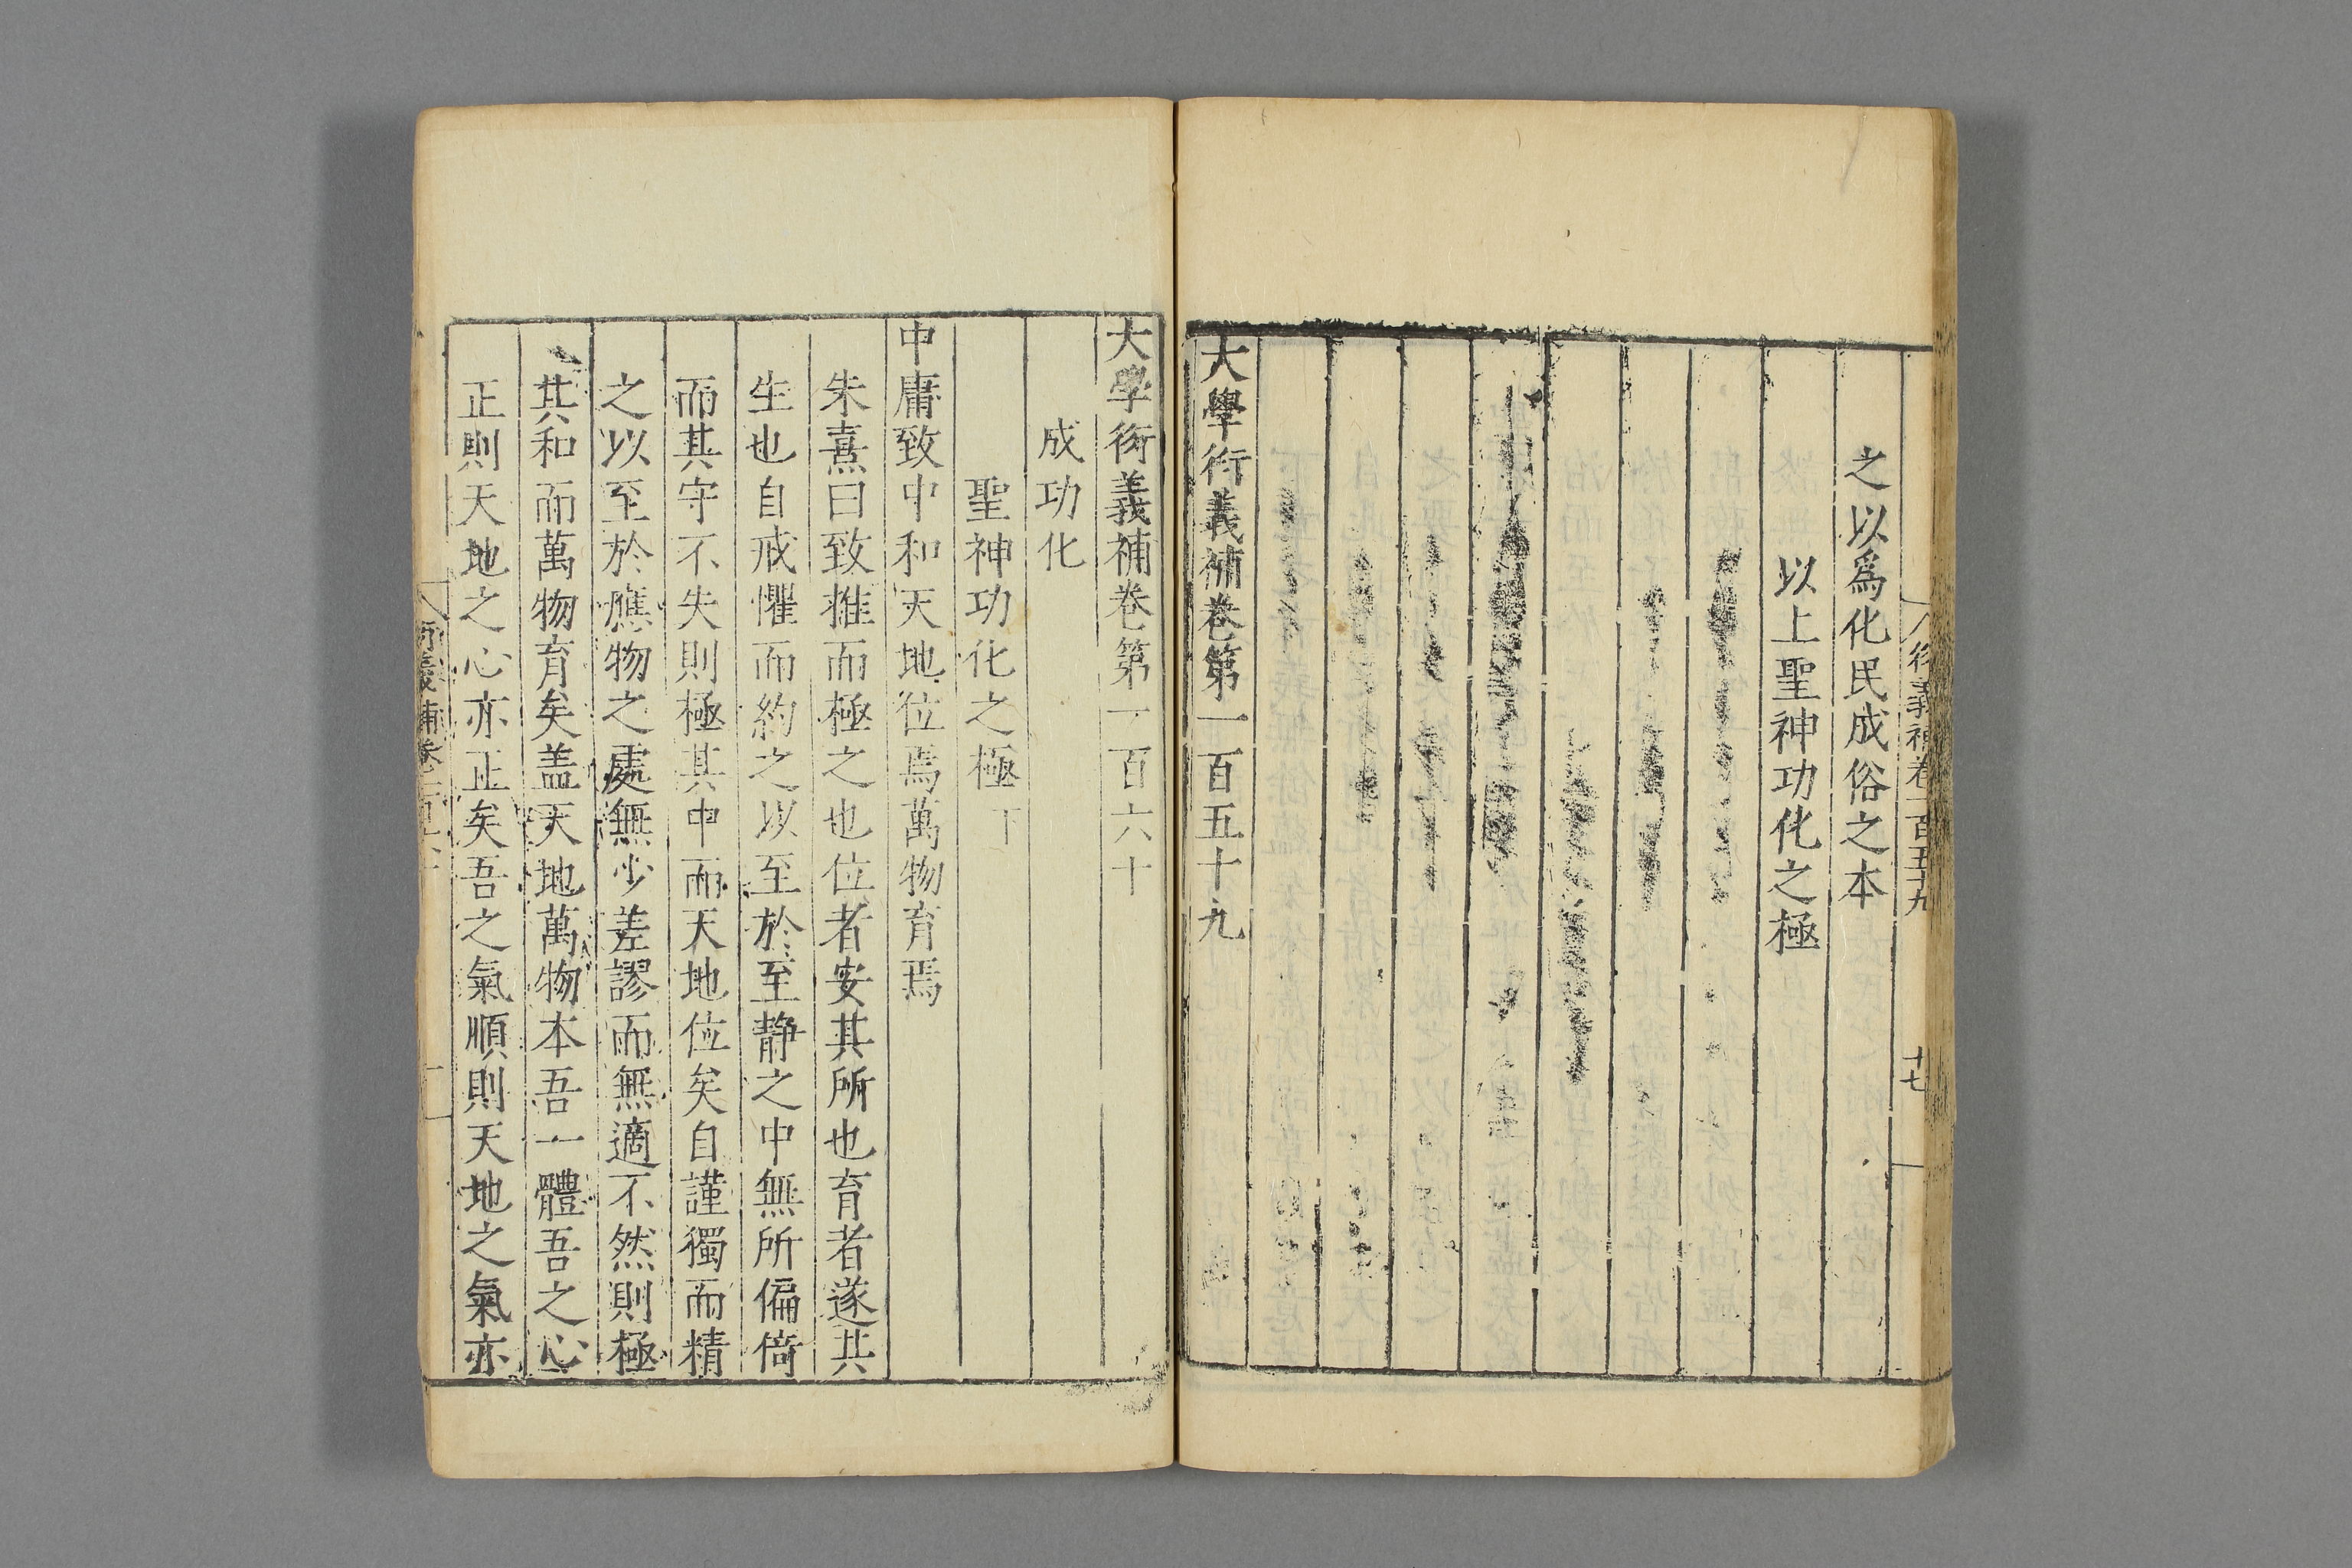 衍義補卷一百五十九
十七
之以爲化民成俗之本
以上聖神功化之極
大學衍義補卷第一百五十九
大學衍義補卷第一百六十
成功化
聖神功化之極下
中庸致中和天地位焉萬物育焉
朱熹曰致推而極之也位者安其所也育者遂其
生也自戒懼而約之以至於至静之中無所偏倚
而其守不失則極其中而天地位矣自謹獨而精
之以至於應物之處無少差謬而無適不然則極
其和而萬物育矣盖天地萬物本吾一體吾之心
正則天地之心亦正矣吾之氣順則天地之氣亦